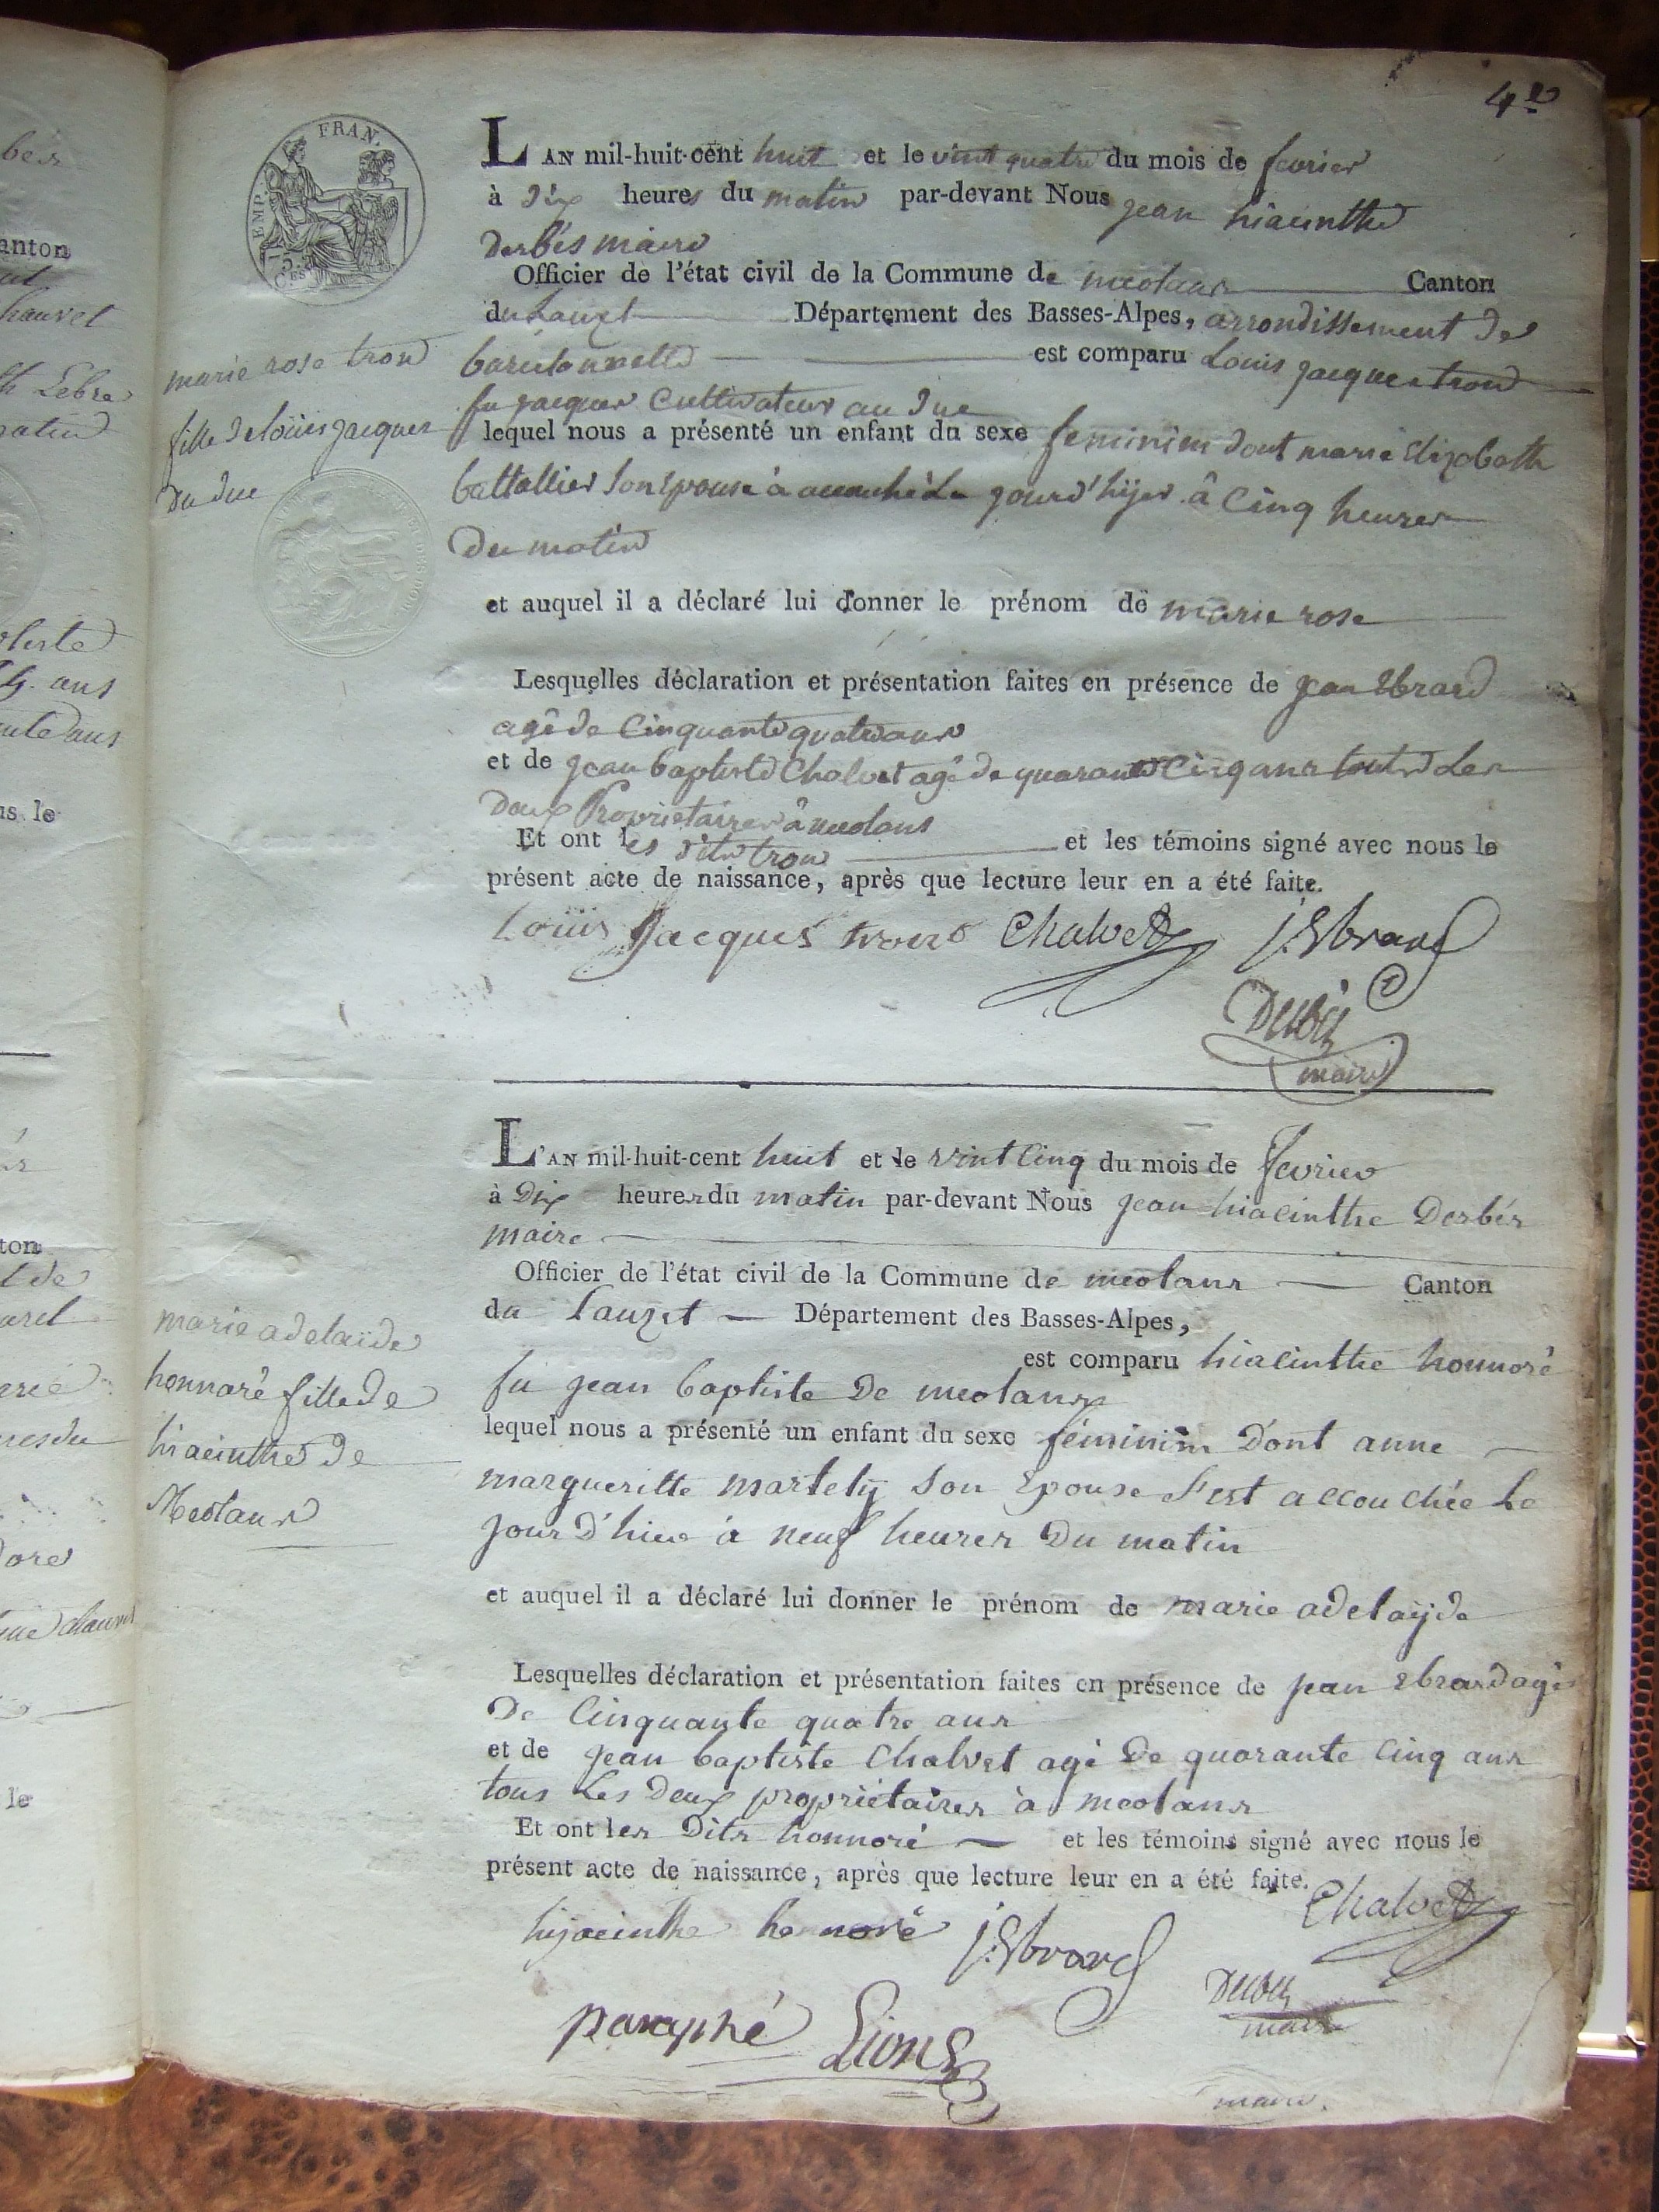 4e
FRAN.
EMP.
75
CES
LAN mil-huit-cent huit et le vint quatre du mois de fevrier
à Dix heures du matin par-devant Nous jean hiacinthe
Derbés maire
Officier de l'état civil de la Commune de meolans Canton
du Lauzet Département des Basses-Alpes, arrondissement de
barcelonnette est comparu Louis jacques tron
fu jacques Cultivateur au Duc
lequel nous a présenté un enfant du sexe feminim dont marie Elizabeth
battallier son Epouse à accouché Le jourd'hijer à Cinq heures
du matin
et auquel il a déclaré lui donner le prénom de marie rose
Lesquelles déclaration et présentation faites en présence de jean Ebrard
agé de Cinquante quatre ans
et de jean baptiste Chalvet agé de quarante Cinq ans toutes Les
Deux Proprietaires à meolans
Et ont les dits tron et les témoins signé avec nous le
présent acte de naissance, après que lecture leur en a été faite.
Loüis Jacques tron Chalvet j. Ebrard
Derbés
maire
marie rose tron
fille de loüis jacques
du duc
L'AN mil-huit-cent huit et le vint Cinq du mois de fevrier
à Dix heures du matin par-devant Nous jean hiacinthe Derbés
maire
Officier de l'état civil de la Commune de meolans Canton
du Lauzet Département des Basses-Alpes,
est comparu hiacinthe honnoré
fu jean baptiste De meolans
lequel nous a présenté un enfant du sexe féminim D'ont anne
margueritte martelij son Epouse s'est accouchée Le
jour D'hier à neuf heures Du matin
et auquel il a déclaré lui donner le prénom de marie adelaÿde
Lesquelles déclaration et présentation faites en présence de jean Ebrard agé
De Cinquante quatre ans
et de jean baptiste Chalvet agé De quarante Cinq ans
tous Les Deux propriétaires à meolans
Et ont les Dits honnoré et les témoins signé avec nous le
présent acte de naissance, après que lecture leur en a été faite.
Chalvet
hijacinthe honnoré j. Ebrard
Derbés
maire
paraphé Lions
maire.
marie adelaïde
honnoré fille de
hiacinthe de
Meolans
anton
hauvet
ans
us le
ton
le